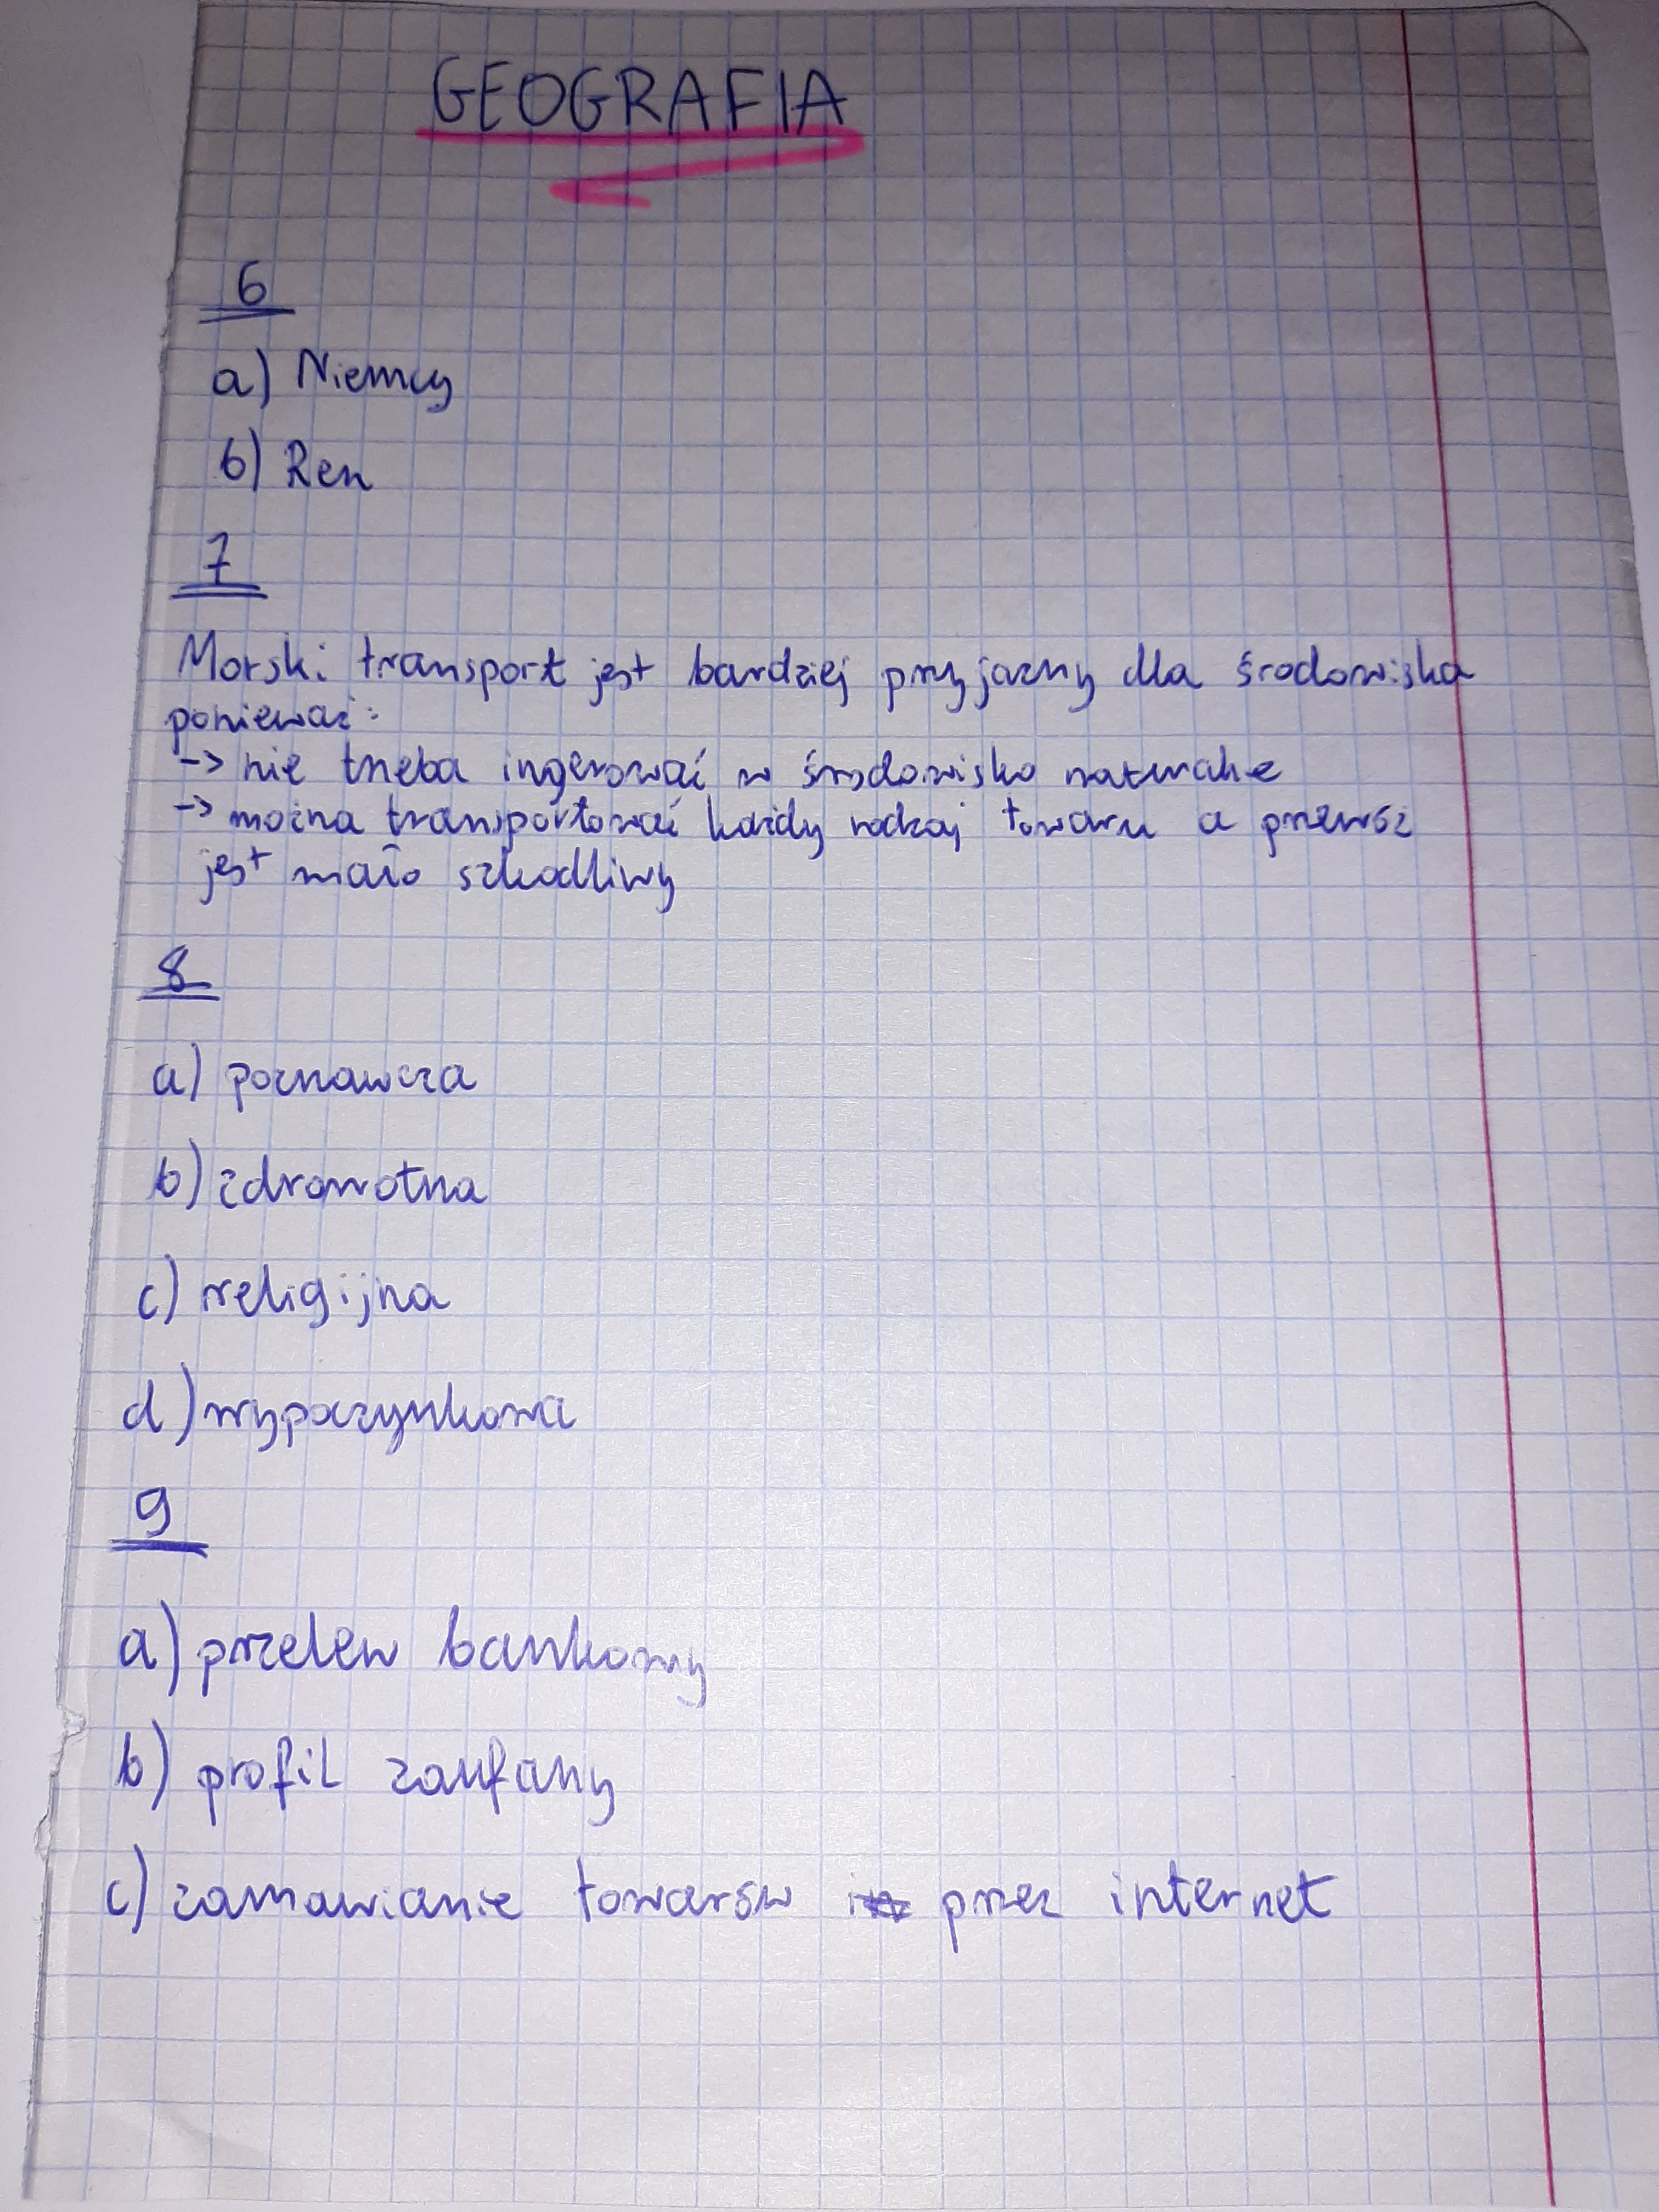 GEOGRAFIA
6
a) Niemcy
b) Ren
7
Morski transport jest bardziej przyjazny dla środowiska
ponieważ:
-> nie trzeba ingerować w środowisko naturalne
-> można transportować każdy rodzaj towaru a przewóz
jest mało szkodliwy
8
a) poznawcza
b) zdrowotna
c) religijna
d) wypoczynkowa
9
a) przelew bankowy
b) profil zaufany
c) zamawianie towarów przez internet